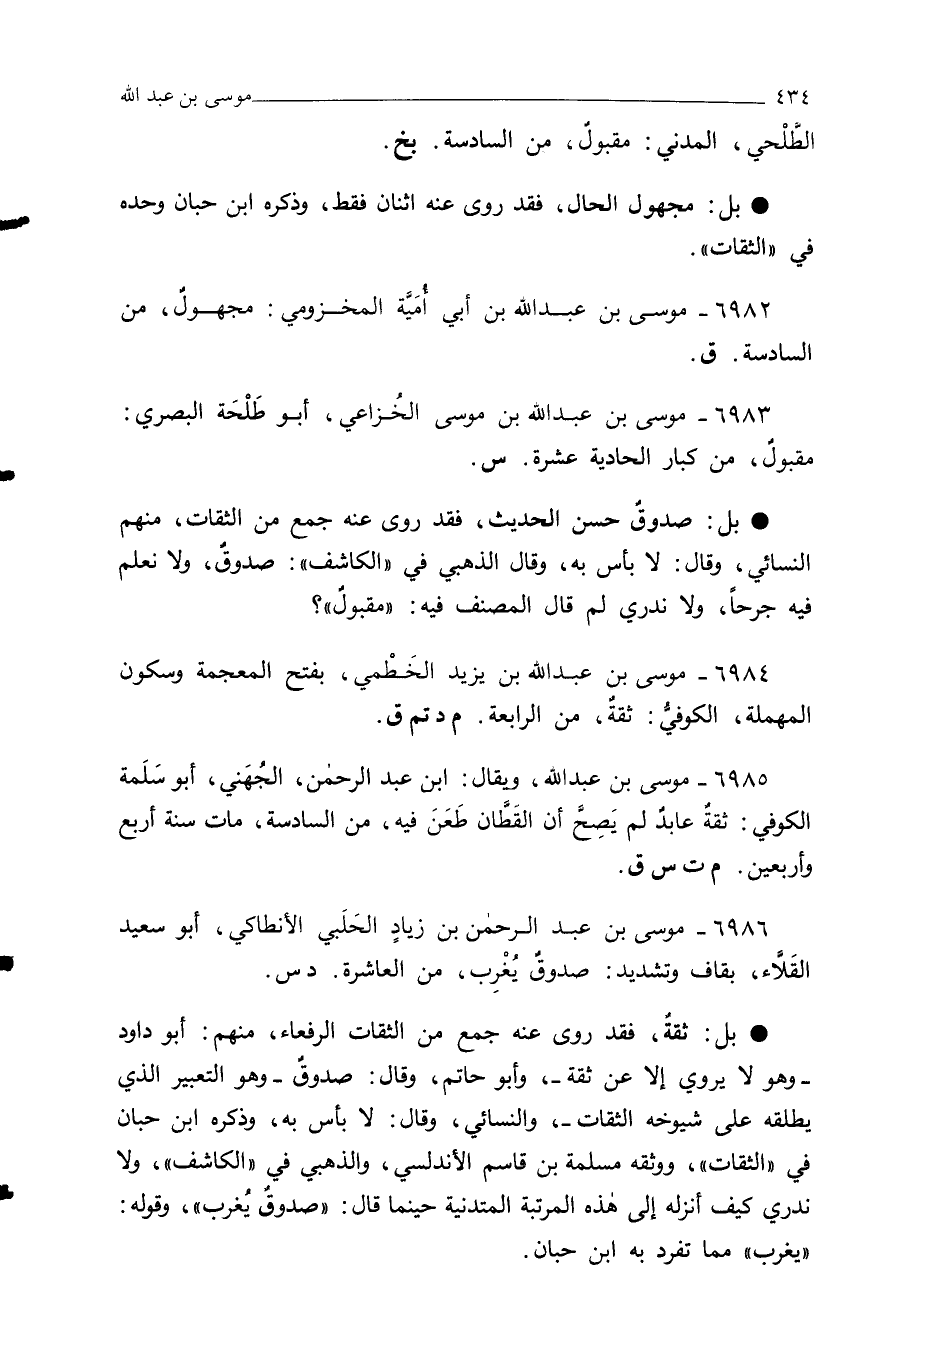 ٤٣٤ موسى بن عبد الله
الطَّلْحي، المدني: مقبولٌ، من السادسة. بخ.
● بل: مجهول الحال، فقد روى عنه اثنان فقط، وذكره ابن حبان وحده
في «الثقات».
٦٩٨٢ - موسى بن عبدالله بن أبي أُمَيَّة المخزومي: مجهولٌ، من
السادسة. ق.
٦٩٨٣ - موسى بن عبدالله بن موسى الخُزاعي، أبو طَلْحَة البصري:
مقبولٌ، من كبار الحادية عشرة. س.
● بل: صدوقٌ حسن الحديث، فقد روى عنه جمع من الثقات، منهم
النسائي، وقال: لا بأس به، وقال الذهبي في «الكاشف»: صدوقٌ، ولا نعلم
فيه جرحاً، ولا ندري لم قال المصنف فيه: «مقبولٌ»؟
٦٩٨٤ - موسى بن عبدالله بن يزيد الخَطْمي، بفتح المعجمة وسكون
المهملة، الكوفيُّ: ثقةٌ، من الرابعة. م د تم ق.
٦٩٨٥ - موسى بن عبدالله، ويقال: ابن عبد الرحمٰن، الجُهَني، أبو سَلَمة
الكوفي: ثقةٌ عابدٌ لم يَصِحَّ أن القَطَّان طَعَنَ فيه، من السادسة، مات سنة أربع
وأربعين. م ت س ق.
٦٩٨٦ - موسى بن عبد الرحمٰن بن زيادٍ الحَلَبي الأنطاكي، أبو سعيد
القَلَّاء، بقاف وتشديد: صدوقٌ يُغْرِب، من العاشرة. د س.
● بل: ثقةٌ، فقد روى عنه جمع من الثقات الرفعاء، منهم: أبو داود
- وهو لا يروي إلا عن ثقة -، وأبو حاتم، وقال: صدوقٌ - وهو التعبير الذي
يطلقه على شيوخه الثقات -، والنسائي، وقال: لا بأس به، وذكره ابن حبان
في «الثقات»، ووثقه مسلمة بن قاسم الأندلسي، والذهبي في «الكاشف»، ولا
ندري كيف أنزله إلى هٰذه المرتبة المتدنية حينما قال: «صدوقٌ يُغرب»، وقوله:
«يغرب» مما تفرد به ابن حبان.